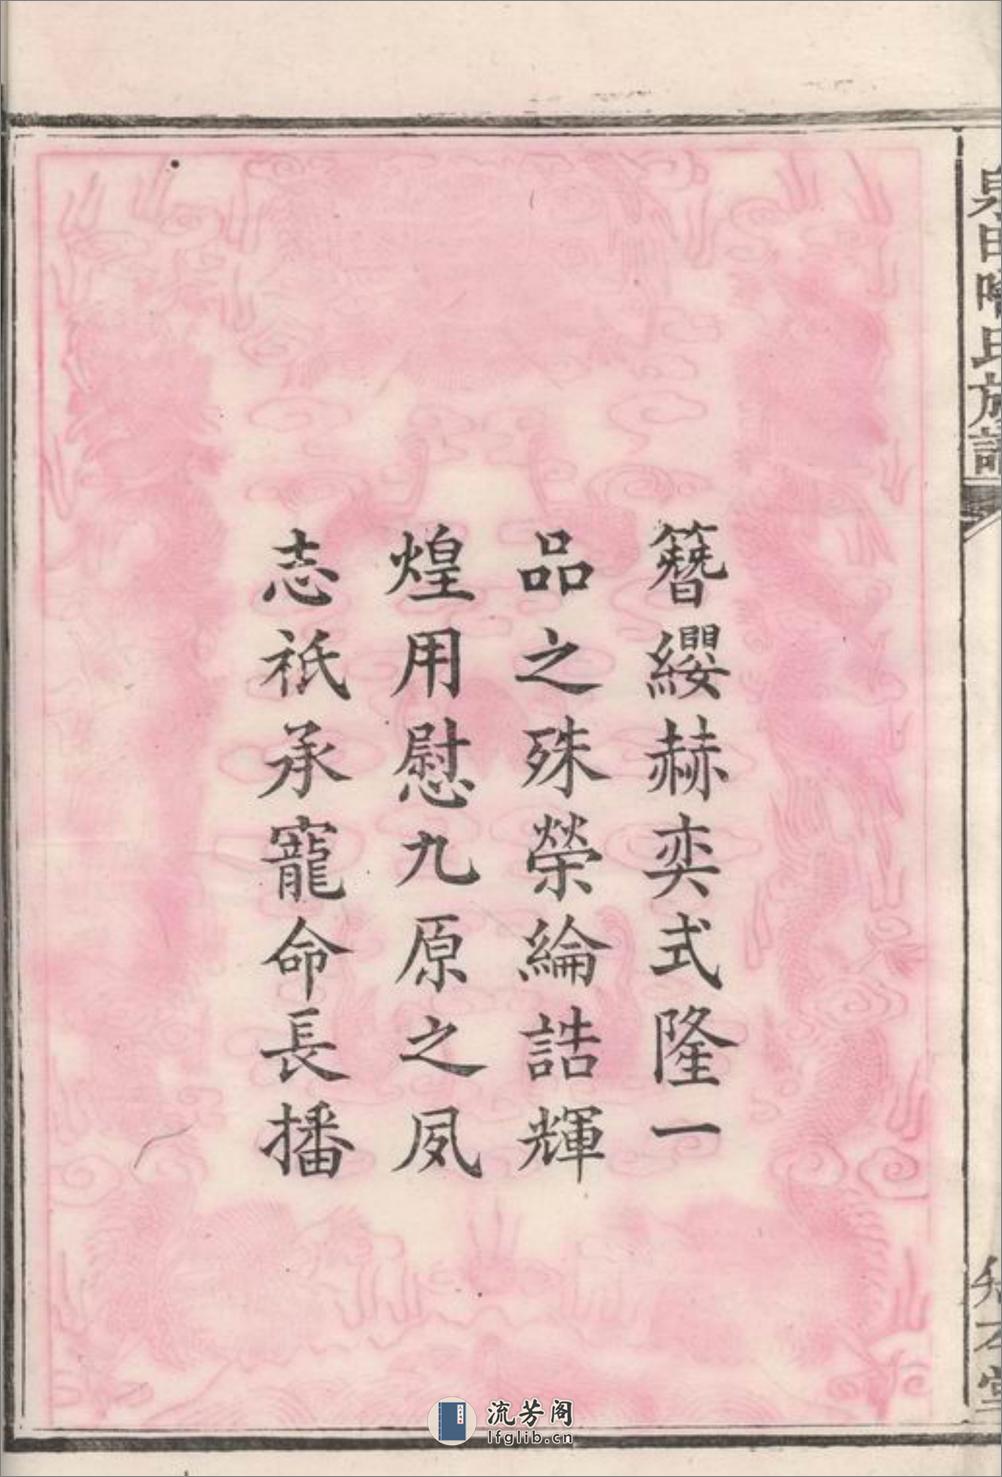 簪纓赫奕式隆一
品之殊榮綸誥輝
煌用慰九原之夙
志祇承寵命長播
氏族譜
堂
流芳阁
lfglib.cn